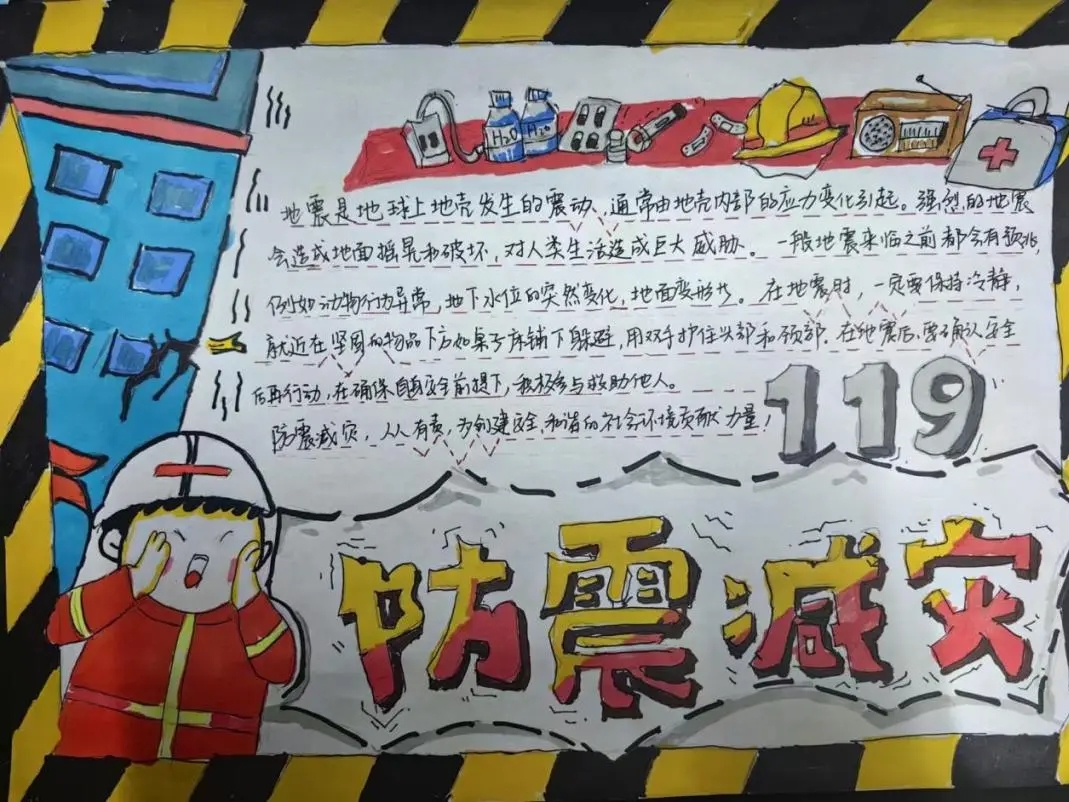 H2O H2O
地震是地球上地壳发生的震动，通常由地壳内部的应力变化引起。强烈的地震
会造成地面摇晃和破坏，对人类生活造成巨大威胁。一般地震来临之前都会有预兆，
例如动物行为异常，地下水位的突然变化，地面变形等。在地震时，一定要保持冷静，
就近在坚固的物品下方如桌子床铺下躲避，用双手护住头部和颈部，在地震后，要确认安全
后再行动，在确保自身安全前提下，积极参与救助他人。
防震减灾，人人有责，为创建安全、和谐的社会环境贡献力量！
119
防震减灾